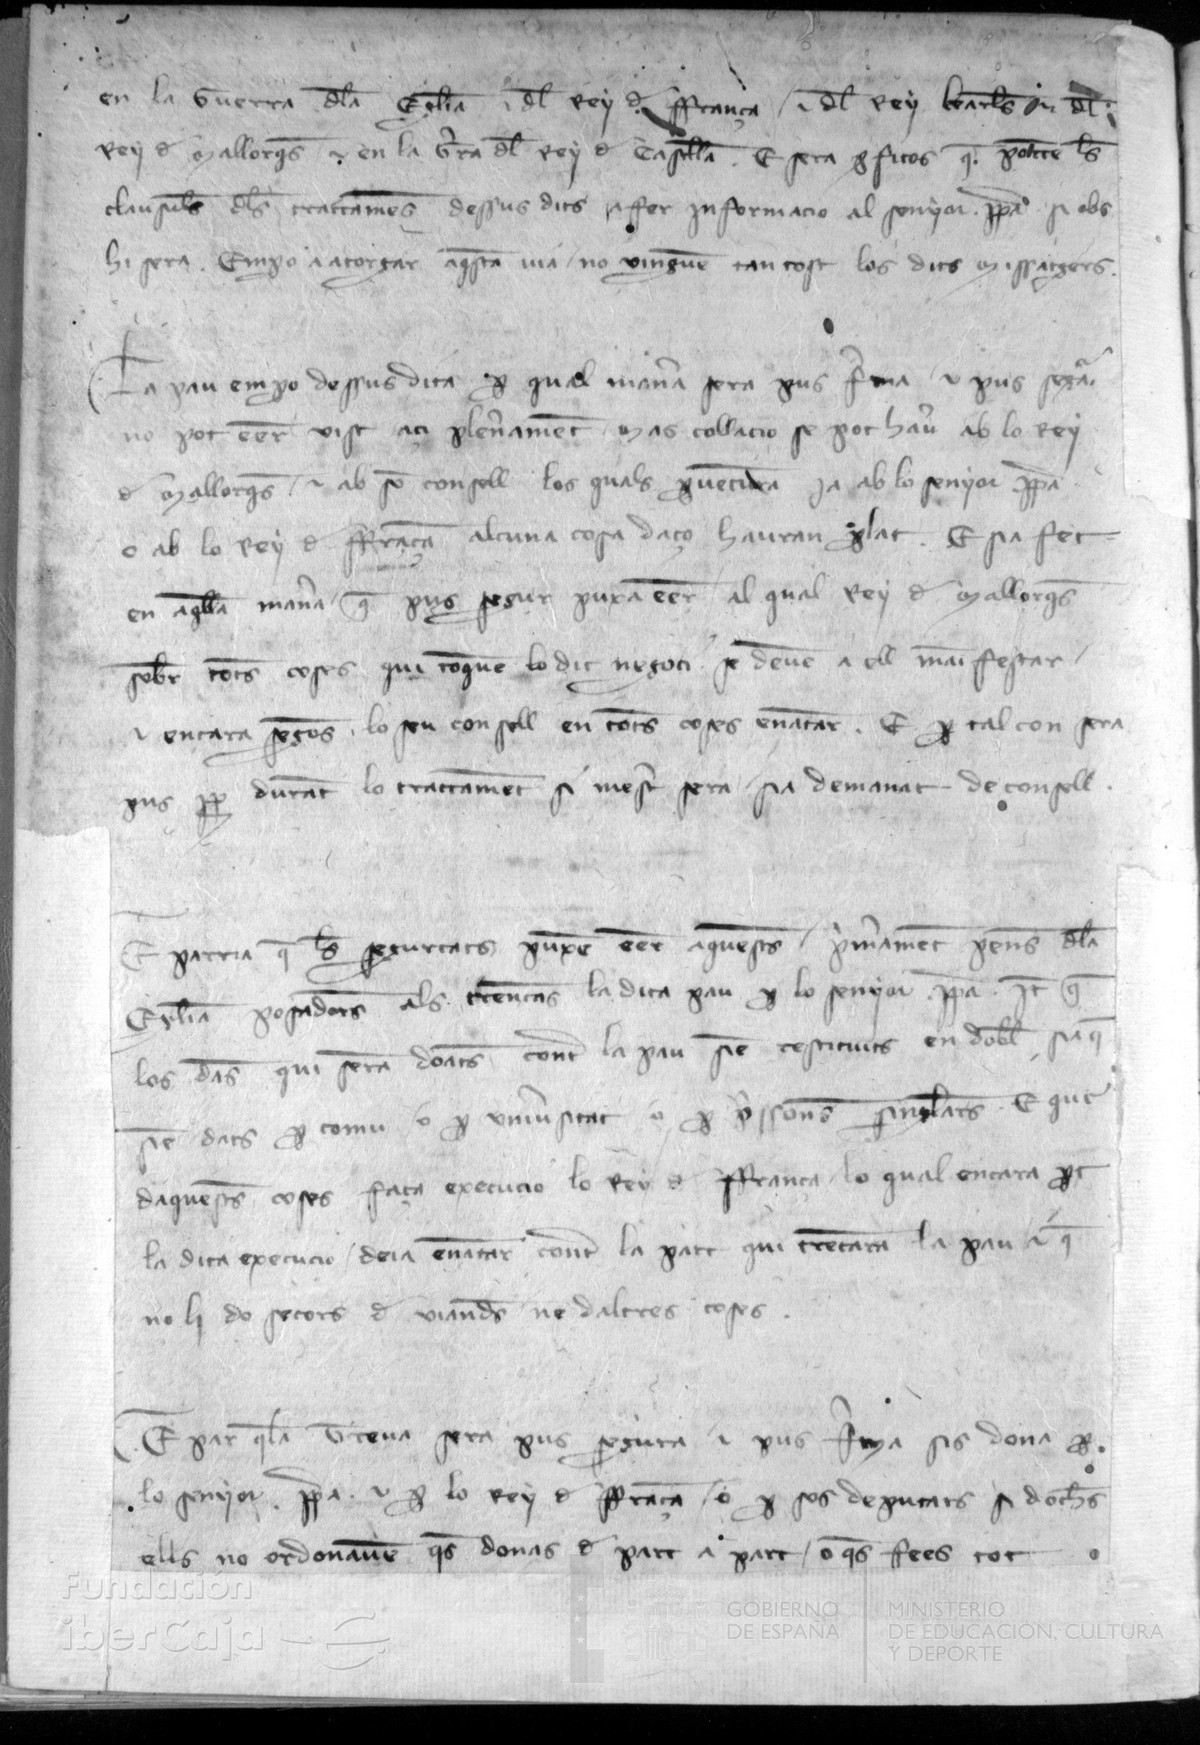 en la Guerra dla Eglia ⁊ dl Rey d ffrança / ⁊ dl Rey karls ⁊ dl
Rey d Mallorqs ⁊ en la Gra dl Rey d Castlla . E sera profitos q. portre ls
clausuls dls tractamēs dessus dits a fer informacio al senyor .ppa. si obs
hi sera . Empo a atorgar aqsta uia / no uinguē tan tost los dits Missatgers .
La pau empo dessus dita p qual mana sera pus fma / ⁊ pus segᵃ
no pot eēr vist aci plenamēt Mas collacio se pot hau ab lo Rey
d Mallorqs / ⁊ ab sō consell los quals puētura ja ab lo senyor .ppa.
o ab lo Rey d ffraça alcuna cosa daço hauran plat . E sia fet
en aqlla mana / q̄ pus segur puxa eēr al qual Rey d Mallorqs
sobr tots coses qui toquē lo dit negoci se deuē a ell maīfestar /
⁊ encara segōs lo seu consell en tots coses enātar . E p tal con sera
pus pp durāt lo tractamēt si mest sera / sia demanat de consell .
E parria q̄ ls segurtats puxē eēr aquests / pmamēt penēs dla
Eglia posadors als trencās la dita pau p lo senyor .ppa. Jt q̄
los dās qui serā doāts cont la pau siē restituits en dobl siaq̄
siē dats p comu o p vniusitat o p pssonēs singlars . E que
daquests coses faça execucio lo Rey d ffrança / lo qual encara pt
la dita execucio / deia enātar cont la part qui trēcara la pau ⁊ q̄
no li do secors d uiāndes ne daltres coses .
E par qla Treua sera pus segura ⁊ pus fma sis dona p
lo senyor .ppa. ⁊ p lo Rey d ffraça / o p sos deputats si dochs
ells no ordonauē qs donas d part a part / o qs fees tot
Fundación
iberCaja
GOBIERNO
DE ESPAÑA
MINISTERIO
DE EDUCACIÓN, CULTURA
Y DEPORTE